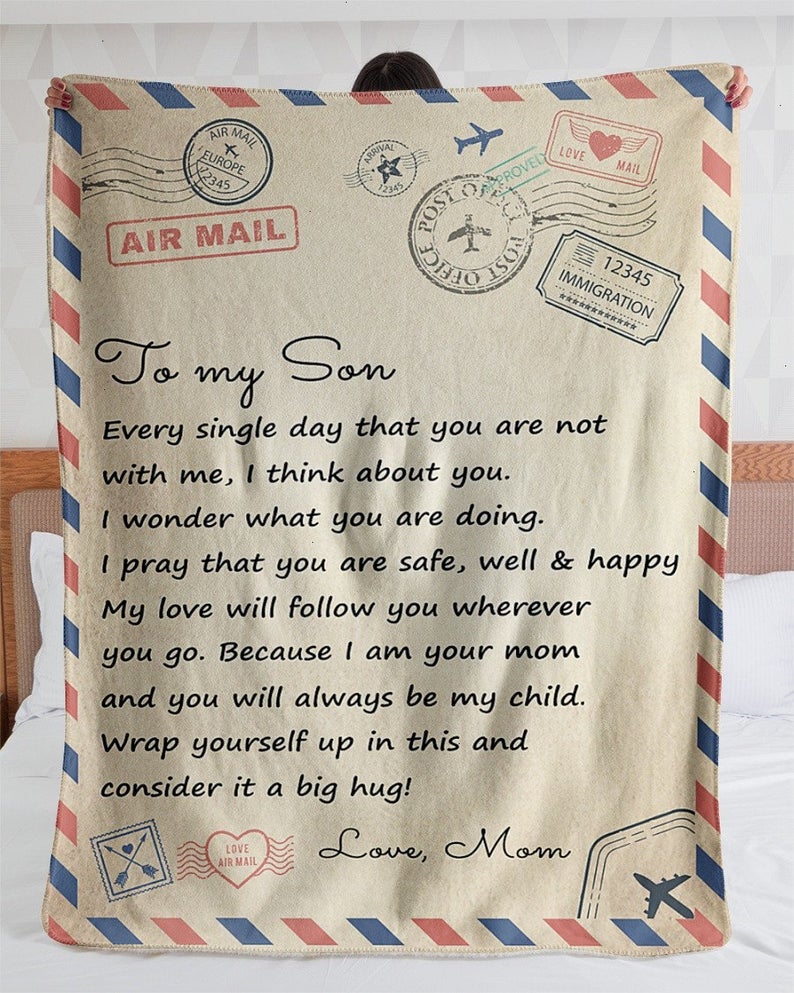 AIR MAIL
EUROPE
12345
ARRIVAL
12345
APPROVED
LOVE MAIL
POST OFFICE
POST OFFICE
AIR MAIL
12345
IMMIGRATION
To my Son
Every single day that you are not
with me, I think about you.
I wonder what you are doing.
I pray that you are safe, well & happy
My love will follow you wherever
you go. Because I am your mom
and you will always be my child.
Wrap yourself up in this and
consider it a big hug!
LOVE
AIR MAIL
Love, Mom